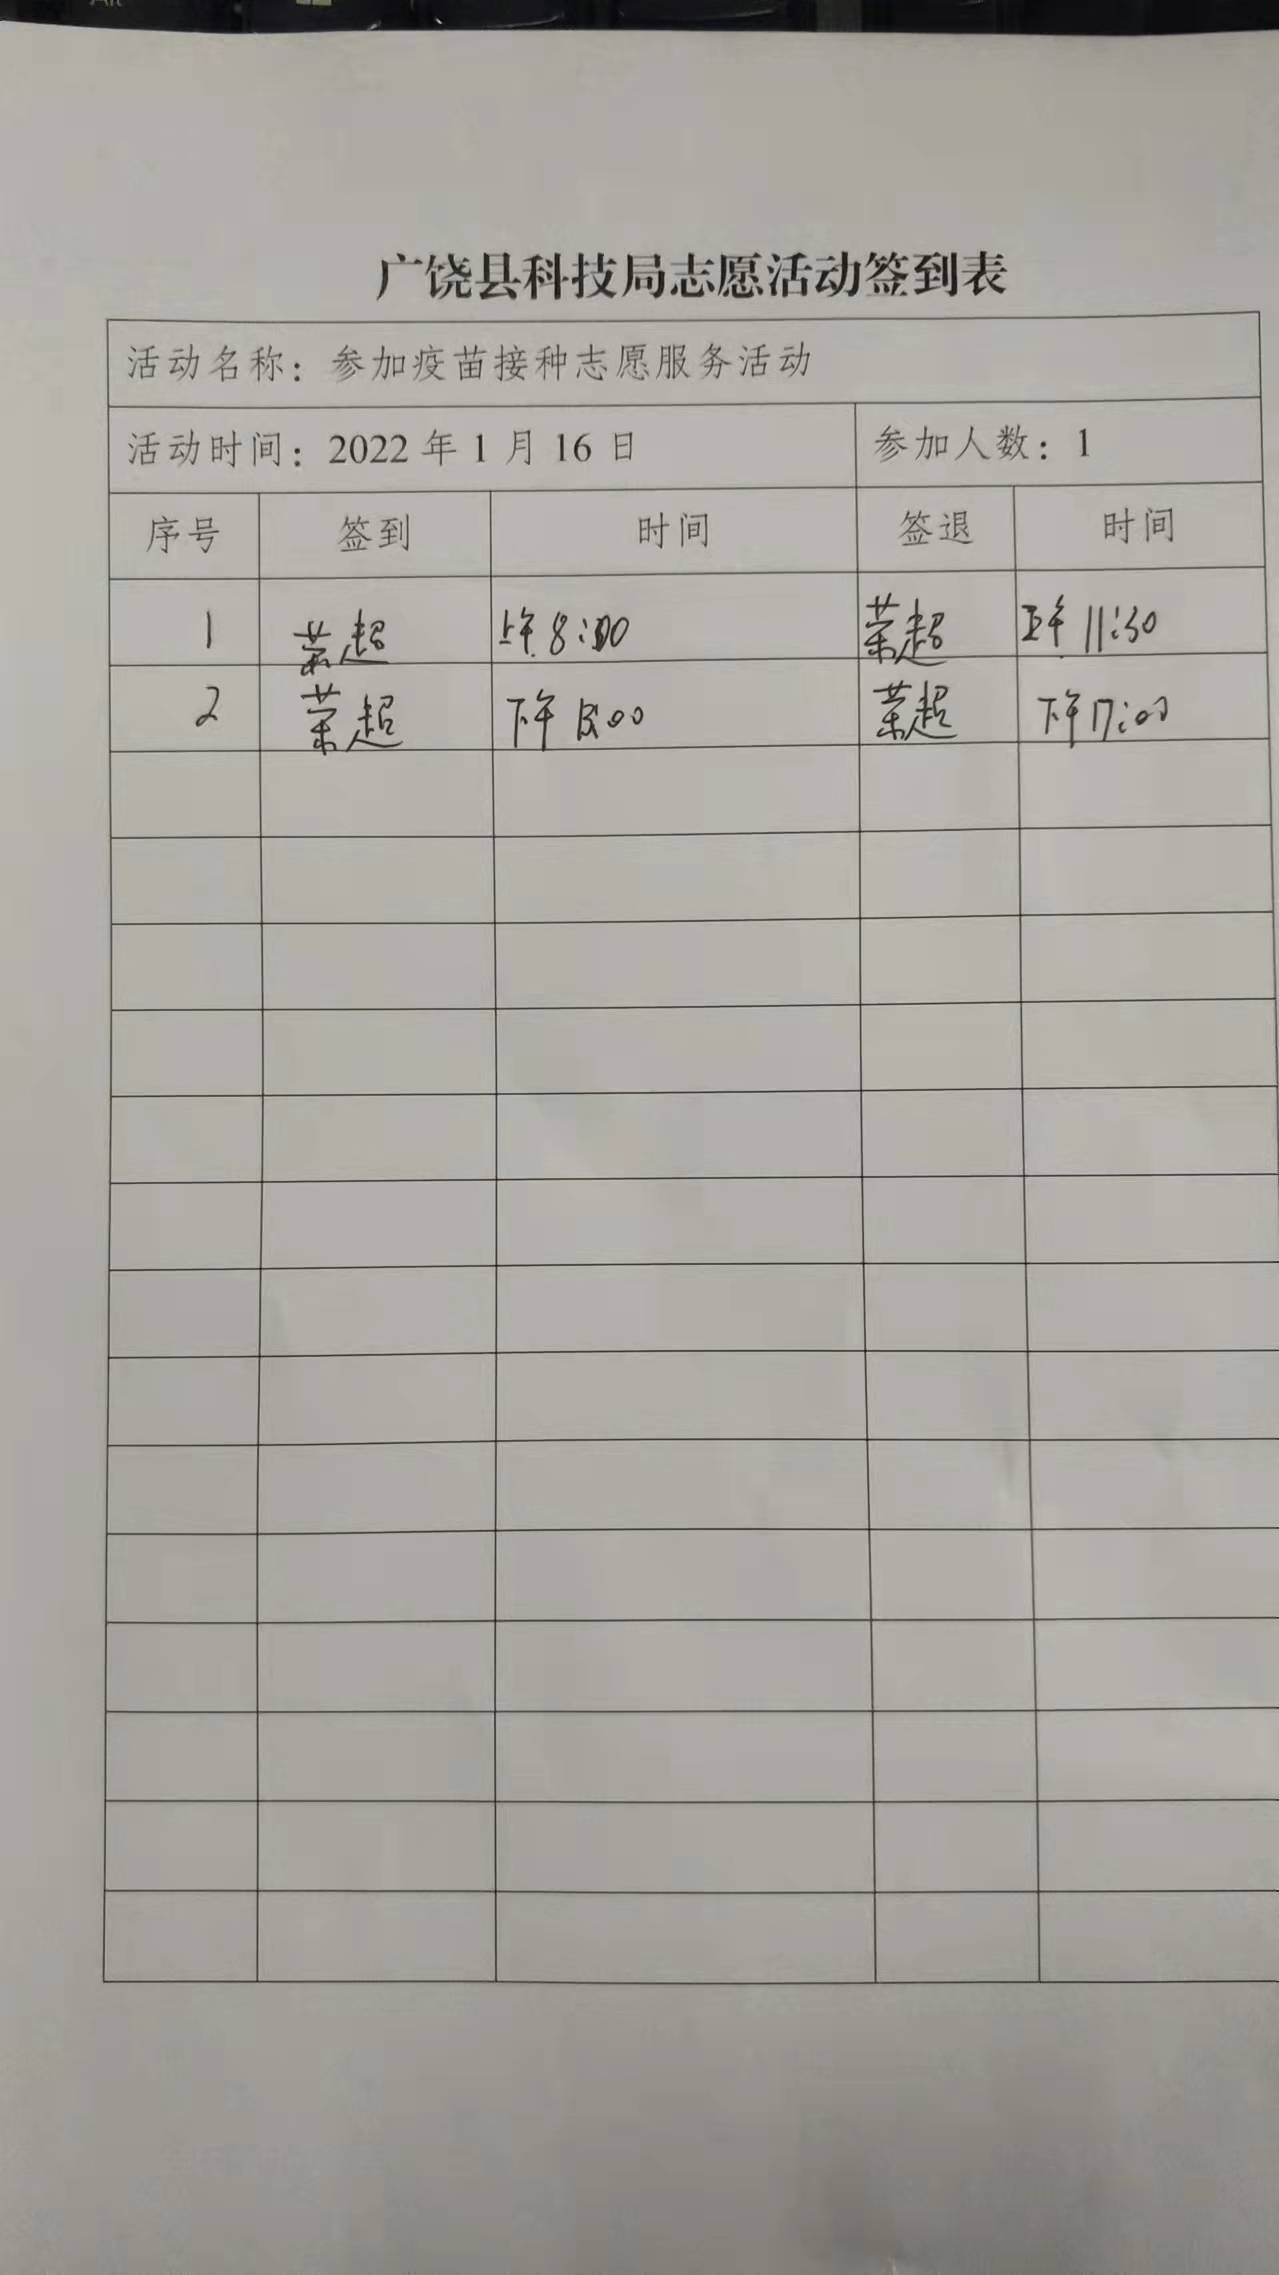 广饶县科技局志愿活动签到表
活动名称：参加疫苗接种志愿服务活动
活动时间：2022 年 1 月 16 日 参加人数：1
序号 签到 时间 签退 时间
1 荣超 上午 8:00 荣超 上午 11:30
2 荣超 下午 荣超 下午 17:00